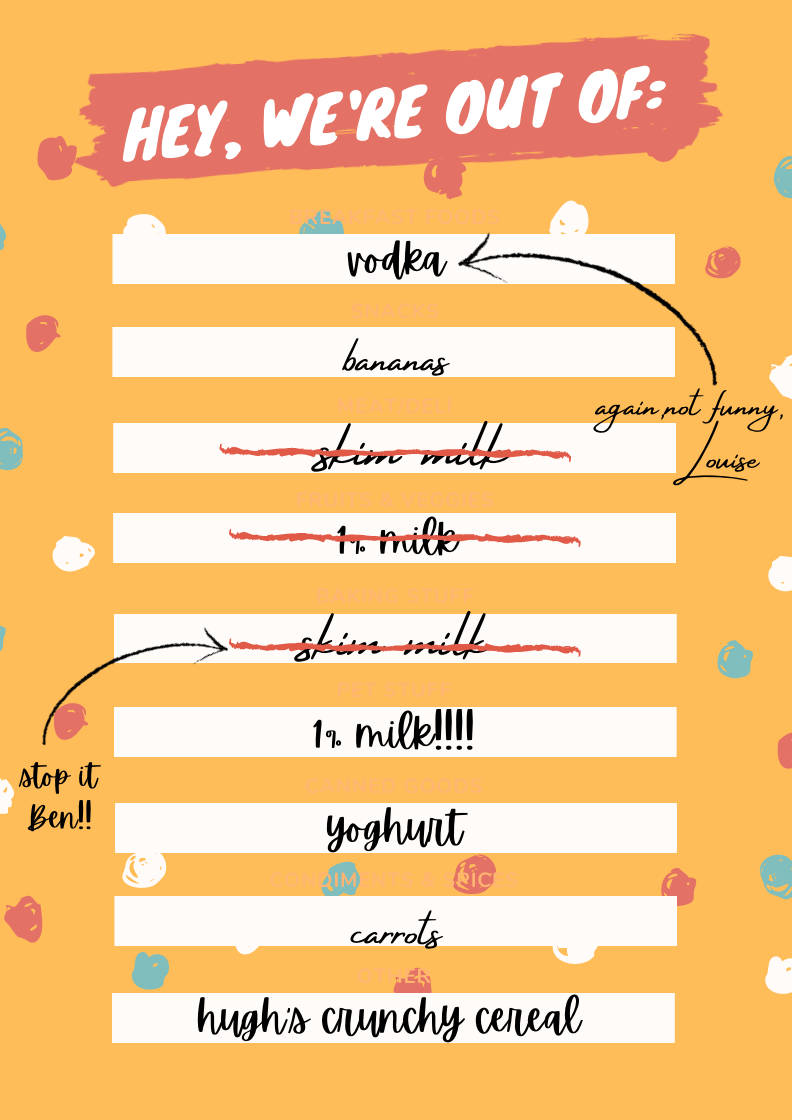 HEY, WE'RE OUT OF:
BREAKFAST FOODS
vodka
SNACKS
bananas
MEAT/DELI
again, not funny,
Louise
skim milk
FRUITS & VEGGIES
1% milk
BAKING STUFF
skim milk
PET STUFF
1% milk!!!!
stop it
Ben!!
CANNED GOODS
yoghurt
CONDIMENTS & SPICES
carrots
OTHER
hugh's crunchy cereal